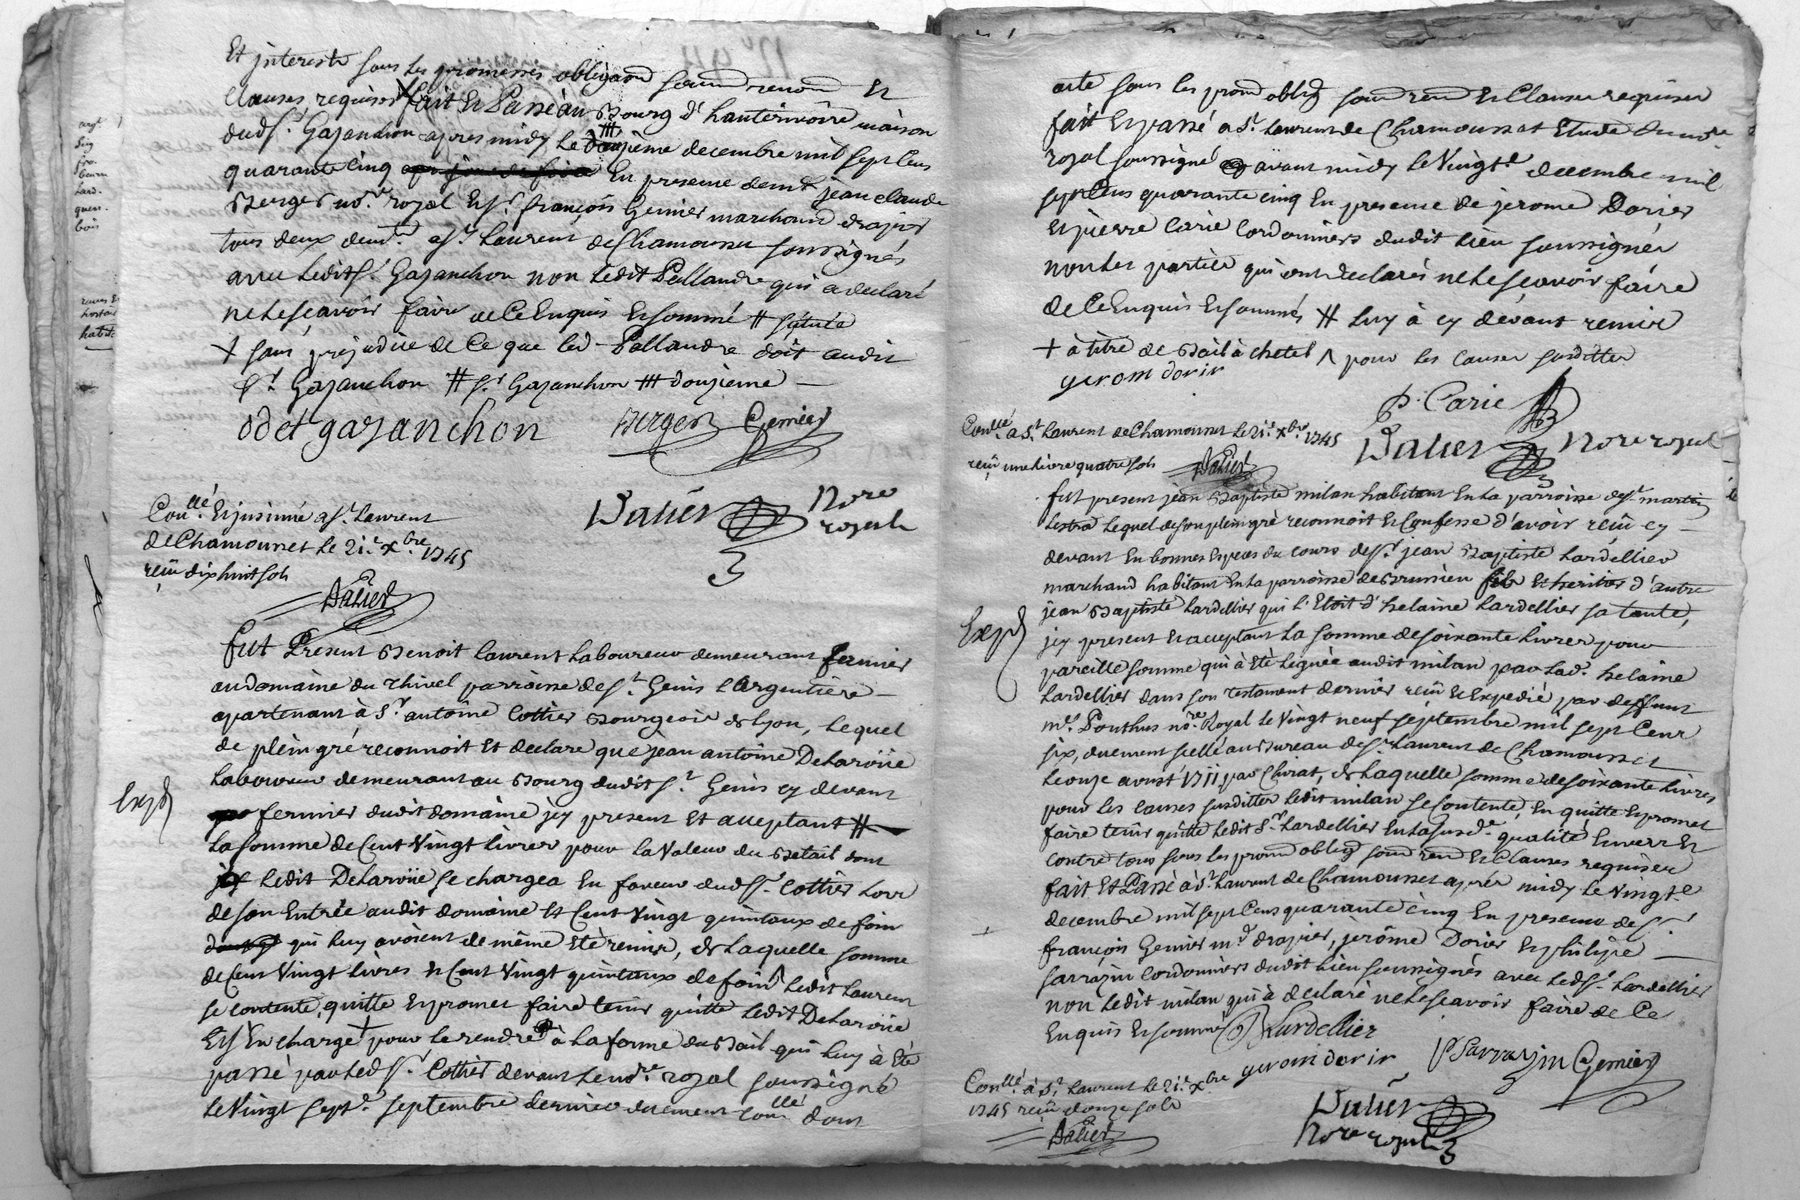 Et interests sous les promesses obligaõns soum̃ renonõ Et
Clauses requises + fait Et Passé au Bourg d'hauterivoire maison
dud Sr Gazanchon apres midy le ### decembre mil sept Cens
quarante Cinq En presence de mre jean claude
Berger nore royal Et Sr françois Gemier marchand drapier
tous deux demts a St Laurent de Chamousset soussignés
avec ledit Sr Gazanchon non ledit Pallandre qui a declaré
ne le sçavoir faire de Ce Enquis Et sommé #
+ sans préjudice de Ce que led Pallandre doit audit
Sr Gazanchon # Sr Gazanchon ### douzieme —
odet gazanchon Berger Gemier
Dalier Nore royal
Conllé Et jnsinué a St Laurent
de Chamousset le 21e Xbre 1745
reçû dix huit sols
Dalier
fut Présent Benoit Laurent Laboureur demeurant fermier
au domaine du Thivel parroisse de St Genis L'Argentière
apartenant à Sr antoine Cottier Bourgeois de Lyon, Lequel
de plein gré reconnoit Et declare que jean antoine Delaroüe
Laboureur demeurant au Bourg dudit St Genis cy devant
fermier dudit domaine jcy present Et acceptant #
La somme de Cent Vingt Livres pour la Valeur du Betail dont
ledit Delaroüe se chargea En faveur dud Sr Cottier Lors
de son Entrée audit domaine Et Cent Vingt quintaux de foin
qui luy avoient de même Eté remis, de Laquelle somme
de Cent Vingt livres Et Cent Vingt quintaux de foin ^ Ledit Laurent
se contente, quitte Et promet faire tenir quitte ledit Delaroüe
Et s'En charge + pour le rendre à la forme du Bail qui luy à Eté
passé par led Sr Cottier devant le nore royal soussigné
le Vingt septe septembre dernier duement conllé dont
Expd
acte sous les prom oblig soum ren Et Clauses requises
fait Et passé a St Laurent de Chamousset Etude du nore
royal soussigné avant midy le Vingte decembre mil
sept Cens quarante cinq En presence de jerome Dorier
Et pierre Carie Cordonniers dudit lieu soussignés
non les parties qui ont declarés ne le sçavoir faire
de Ce Enquis Et sommés # luy à cy devant remis
+ à titre de Bail à chetel ^ pour les causes susdittes
gerom dorir
P. Carie
Conllé a St Laurent de Chamousset le 21e Xbre 1745
reçû une livre quatre sols
Dalier
Dalier Nore royal
fut present jean Baptiste milan habitant En la parroisse de St martin
Lestra Lequel de son plein gré reconnoit Et Confesse d'avoir reçû cy
devant En bonnes Especes du cours de Sr jean Baptiste Lardellier
marchand habitant En la parroisse de Brussieu fils Et heritier d'autre
jean Baptiste Lardellier qui L'Etoit d'helaine Lardellier sa tante,
jcy present Et acceptant La somme de soixante Livres pour
pareille somme qui à Eté Leguée audit milan par lade helaine
Lardellier dans son testament dernier reçû Et Expedié par deffunt
me Ponthus nore Royal le Vingt neuf septembre mil sept Cent
six, duement scellé au Bureau de St Laurent de Chamousset
Le onze avoust 1711 par Chirat, de Laquelle somme de soixante Livres
pour les causes susdittes ledit milan se Contente, En quitte Et promet
faire tenir quitte ledit Sr Lardellier En la susde qualité Envers Et
contre tous sous les prom oblig soum ren Et Clauses requises
fait Et Passé à St Laurent de Chamousset après midy le Vingte
decembre mil sept Cens quarante cinq En presence de Sr
françois Gemier md drapier, jerôme Dorier Et philipe
sarrazin Cordonniers dudit lieu soussignés avec led Sr Lardellier
non ledit milan qui à declaré ne le sçavoir faire de Ce
Enquis Et sommé Lardellier
gerom dorir P Sarrazin Gemier
Expd
Conllé à St Laurent le 21e Xbre
1745 reçû douze sols
Dalier
Dalier
Nore royal